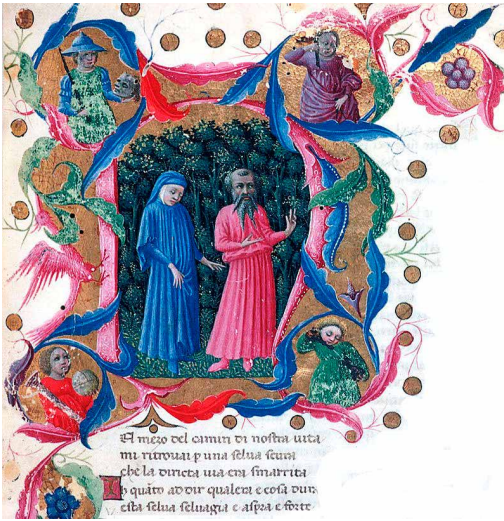 El mezo del camin di nostra uita
mi ritrouai p una selua scura
che la diricta uia era smarrita
h quāto ad dir qualera e cosa dura
esta selua seluagia e aspra e forte